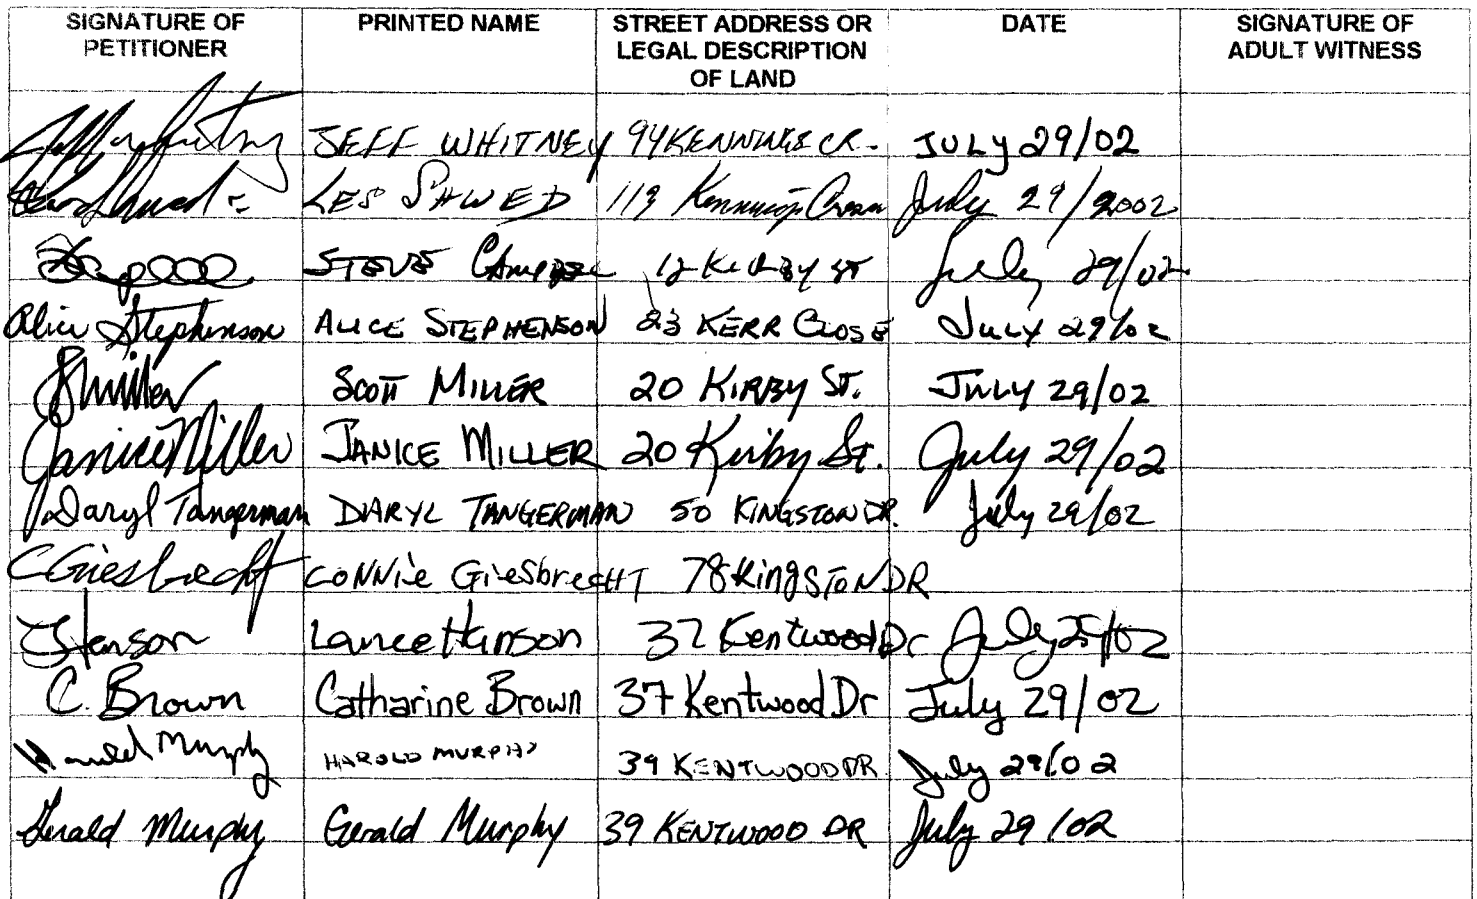 SIGNATURE OF PETITIONER PRINTED NAME STREET ADDRESS OR LEGAL DESCRIPTION OF LAND DATE SIGNATURE OF ADULT WITNESS
JEFF WHITNEY 94 KENNINGS CR. JULY 29/02
LES SAWED 113 Kennings Cres July 29/2002
STEVE CAMPBELL 12 KIRBY ST July 29/02
Alice Stephenson ALICE STEPHENSON 23 KERR CLOSE JULY 29/02
SMiller SCOTT MILLER 20 KIRBY ST. JULY 29/02
Janice Miller JANICE MILLER 20 Kirby St. July 29/02
Daryl Tangerman DARYL TANGERMAN 50 KINGSTON DR. July 29/02
C Giesbrecht CONNIE GiesbrecHT 78 KingSTON DR
LHanson Lance Hanson 37 Kentwood Dr July 29/02
C. Brown Catharine Brown 37 Kentwood Dr July 29/02
Harold Murphy HAROLD MURPHY 39 KENTWOOD DR July 29/02
Gerald Murphy Gerald Murphy 39 KENTWOOD DR July 29/02